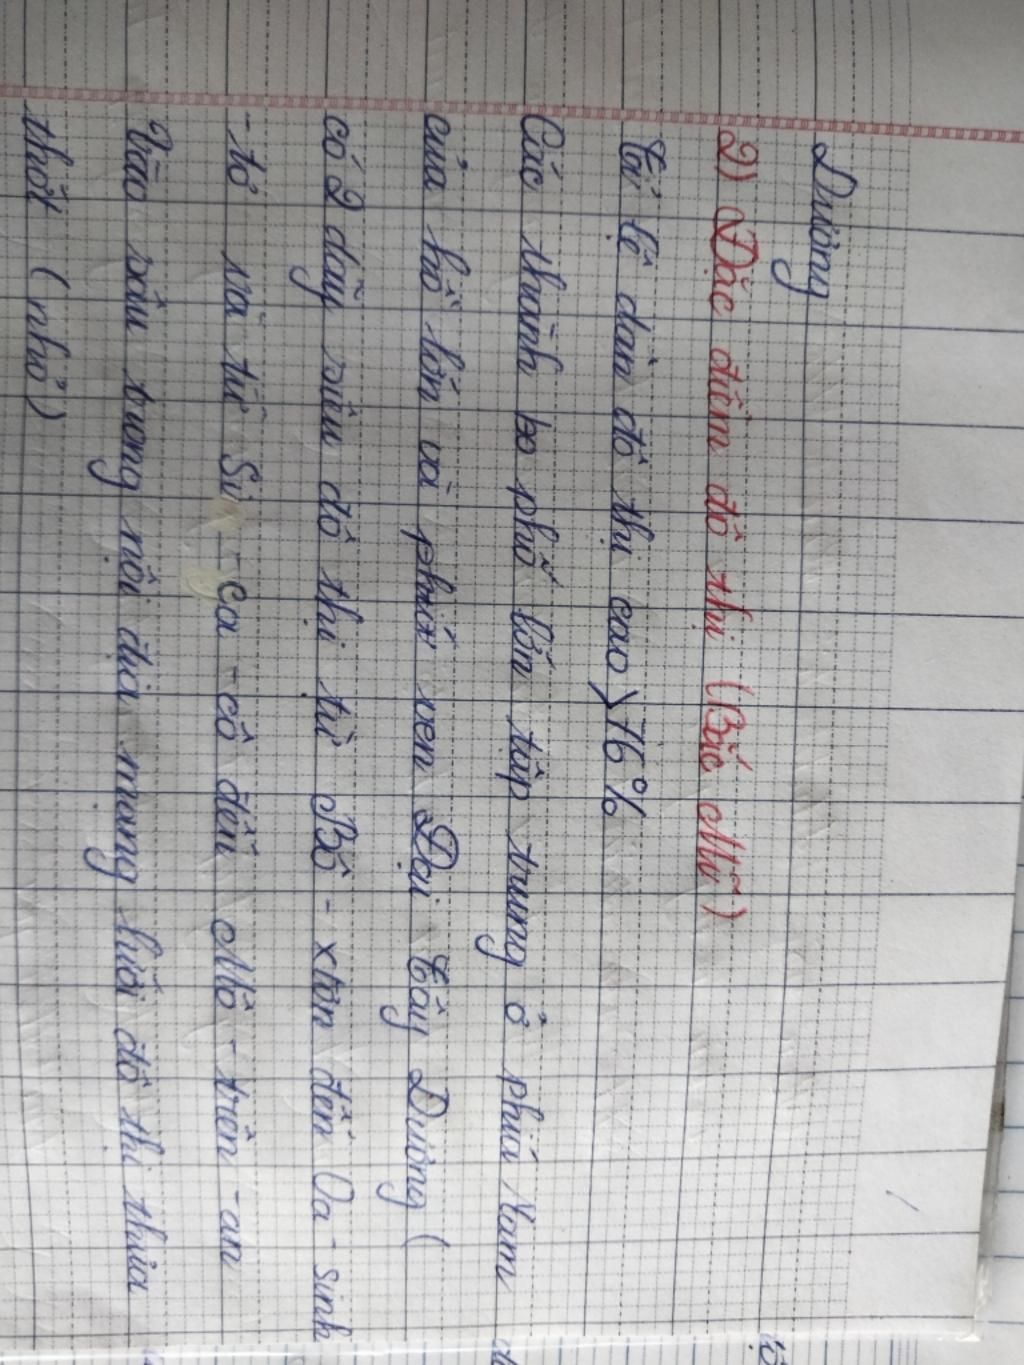 Dương
2) Đặc điểm đô thị (Bắc Mĩ)
Tỉ lệ dân đô thị cao > 76%
Các thành bo phố lớn tập trung ở phía Nam
của hồ lớn và phía ven Đại Tây Dương (
có 2 dãy siêu đô thị từ Bô - xtơn đến Oa - sinh
- tơ và từ Si - ca - cô đến Mô - trên - an
Vào sâu trong nội địa mạng lưới đô thị thưa
thớt (nhỏ)